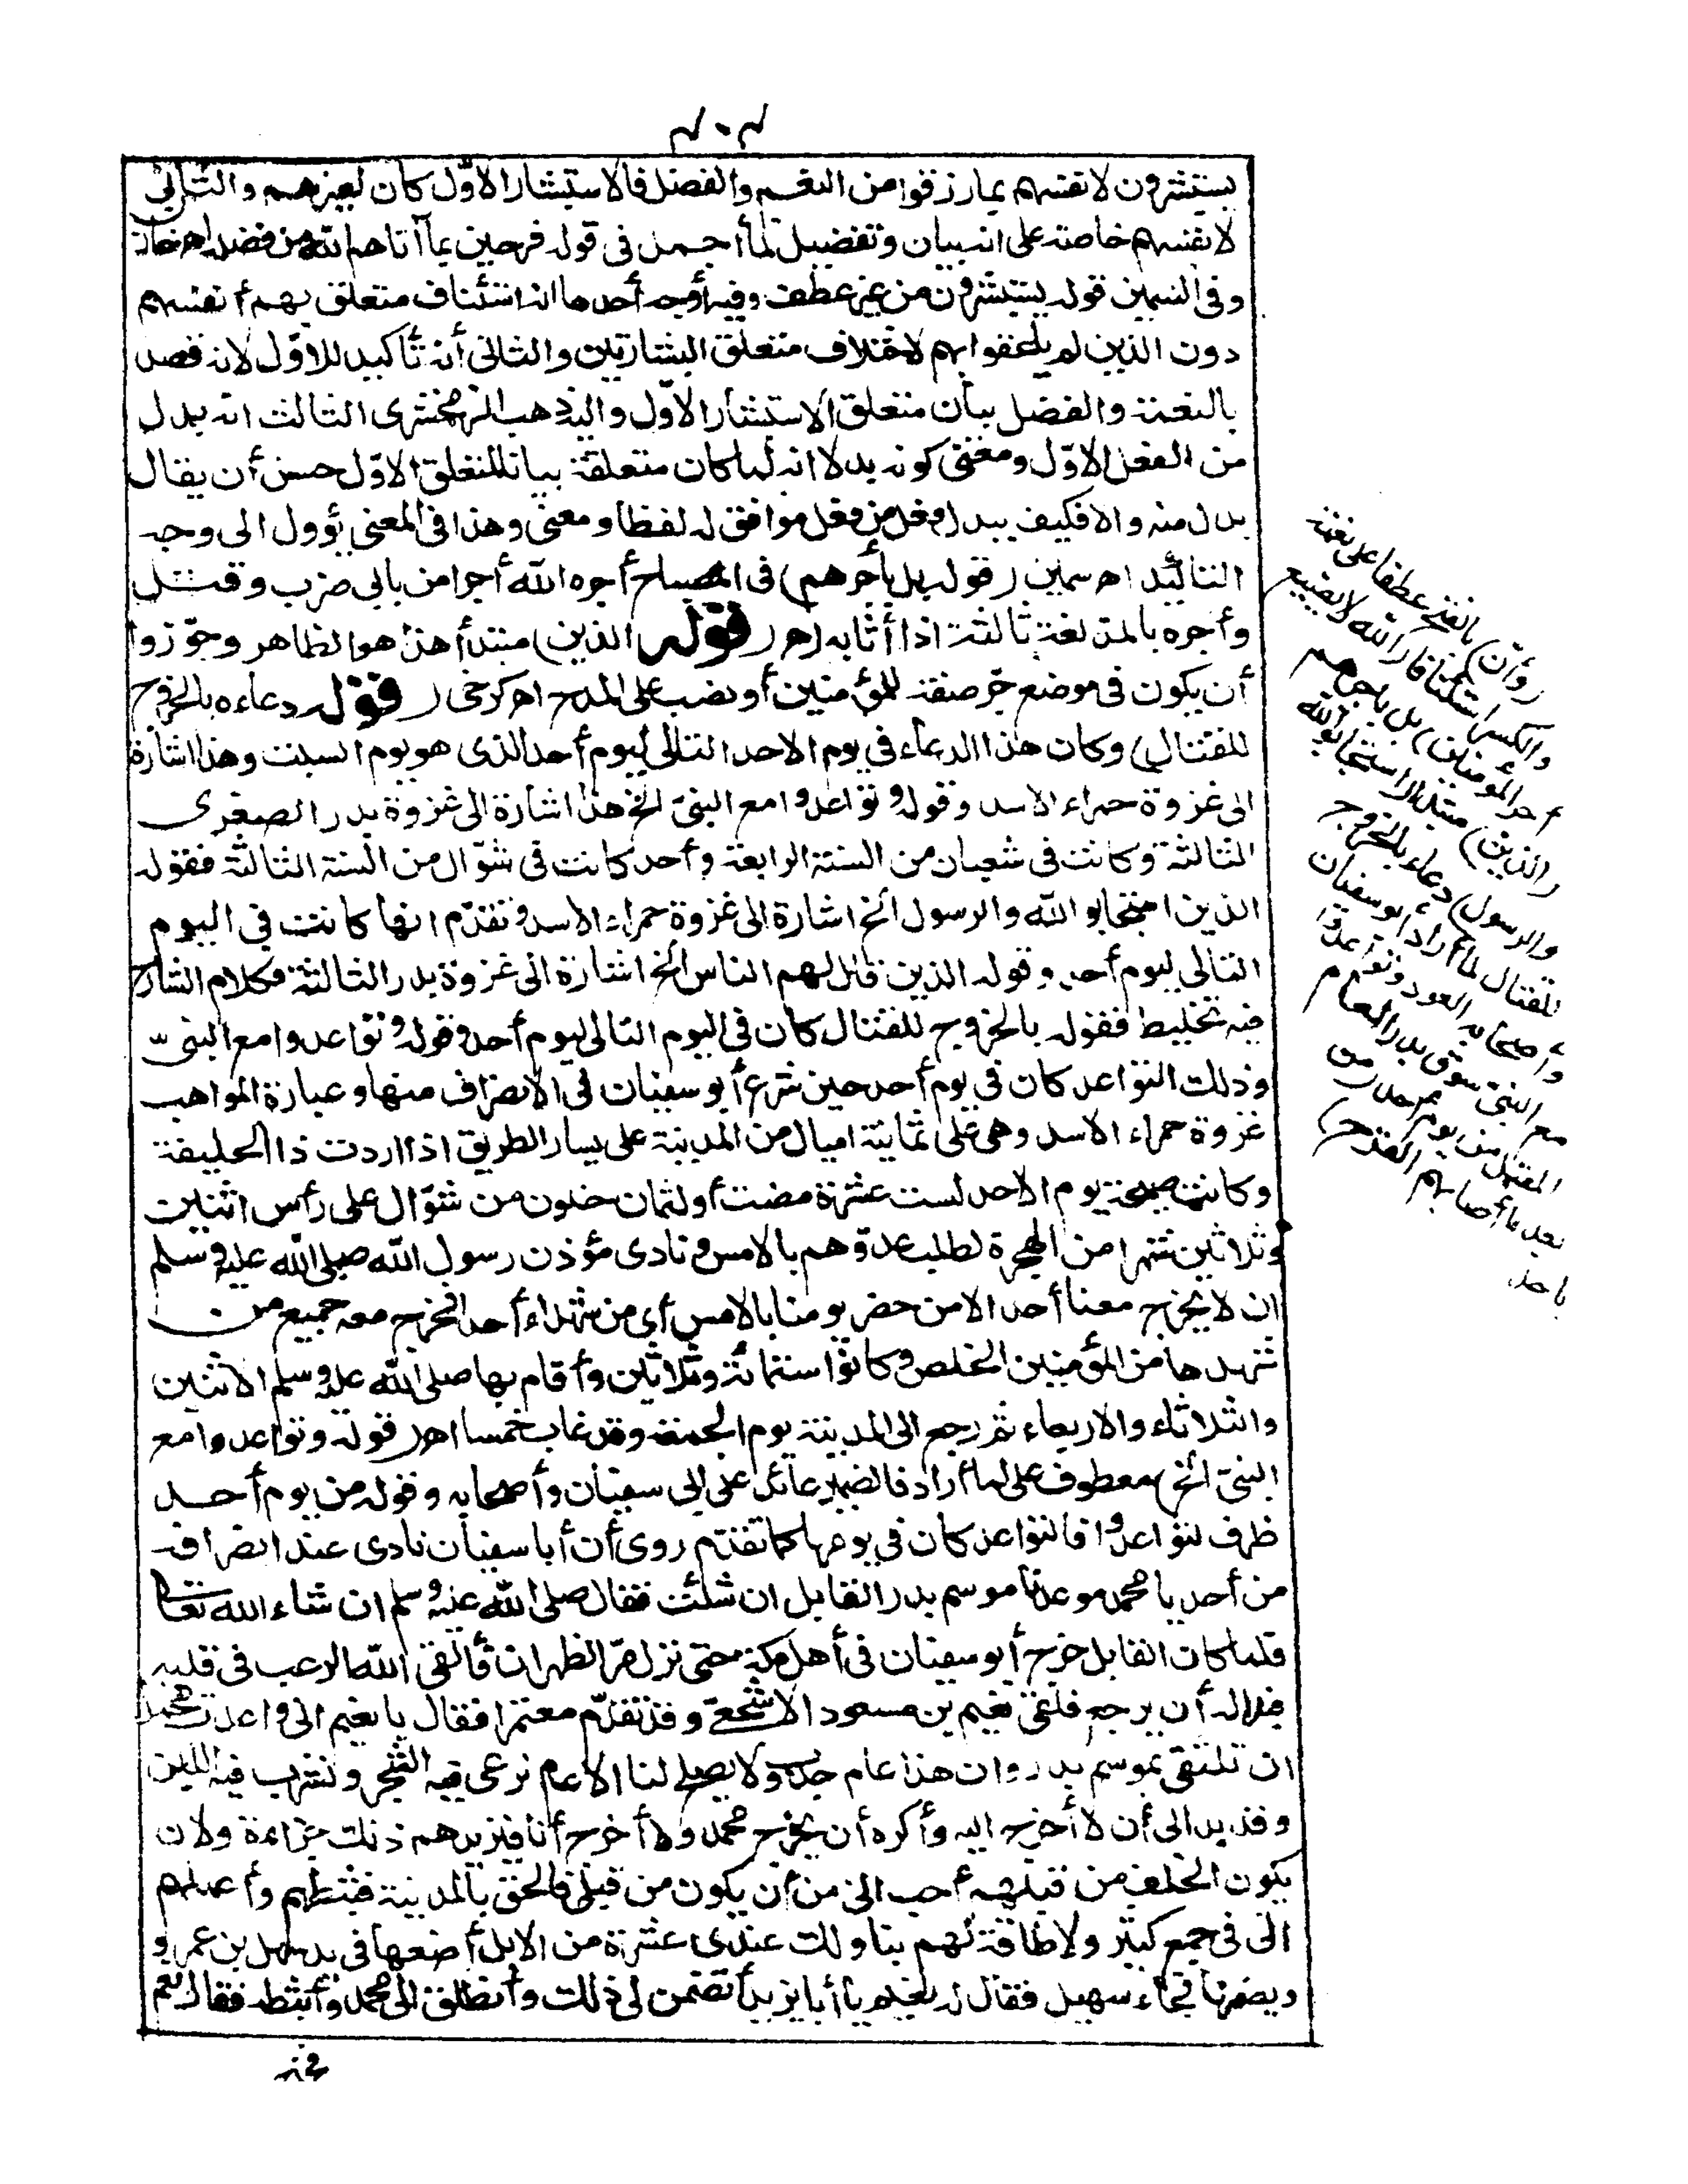 ٣٠٣
يستبشرون لانفسهم بما رزقوا من النعيم والفضل فالاستبشار الاوّل كان لغيرهم والثاني
لانفسهم خاصة على ان بيان وتفصيل لما أجمل فى قوله فرحين بما آتاهم الله من فضله اهـ خازن
وفى السمين قوله يستبشرون من غير عطف وفيه أوجه أحدها انه استئناف متعلق بهم أنفسهم
دون الذين لم يلحقوا بهم لاختلاف متعلق البشارتين والثانى أنه تأكيد للاوّل لانه قصد
بالنعمة والفضل بيان متعلق الاستبشار الاوّل واليه ذهب الزمخشرى الثالث انه بدل
من الفعل الاوّل ومعنى كونه بدلا انه لما كان متعلقه بيانا لمتعلق الاوّل حسن أن يقال
بدل منه والا فكيف يبدل فعل من فعل موافق له لفظا ومعنى وهذا فى المعنى يؤول الى وجه
التأكيد اهـ سمين (قوله بل يأجرهم) فى المصباح أجره الله أجرا من بابى ضرب وقتل
وأجره بالمد لغة ثالثة اذا أثابه اهـ (قوله الذين) مبتدأ هذا هو الظاهر وجوّزوا
أن يكون فى موضع جرّ صفة للمؤمنين أو نصب على المدح اهـ كرخى (قوله دعاءه بالخروج
للقتال) وكان هذا الدعاء فى يوم الاحد التالى ليوم أحد الذى هو يوم السبت وهذا اشارة
الى غزوة حمراء الاسد وقوله وتواعدوا مع النبىّ الخ هذا اشارة الى غزوة بدر الصغرى
الثالثة وكانت فى شعبان من السنة الرابعة وأحد كانت فى شوّال من السنة الثالثة فقوله
الذين استجابوا الله والرسول الخ اشارة الى غزوة حمراء الاسد وتقدّم انها كانت فى اليوم
التالى ليوم أحد وقوله الذين قال لهم الناس الخ اشارة الى غزوة بدر الثالثة فكلام الشارح
فيه تخليط فقوله بالخروج للقتال كان فى اليوم التالى ليوم أحد وقوله وتواعدوا مع النبىّ
وذلك التواعد كان فى يوم أحد حين شرع أبو سفيان فى الانصراف منها وعبارة المواهب
غزوة حمراء الاسد وهى على ثمانية اميال من المدينة على يسار الطريق اذا اردت ذا الحليفة
وكانت صبيحة يوم الاحد لست عشرة مضت أو لثمان خلون من شوّال على رأس اثنين
وثلاثين شهرا من الهجرة لطلب عدوّهم بالامس ونادى مؤذن رسول الله صلى الله عليه وسلم
ان لا يخرج معنا أحد الا من حضر يومنا بالامس أى من شهداء أحد فخرج معه جميع من
شهدها من المؤمنين الخلص وكانوا ستمائة وثلاثين وأقام بها صلى الله عليه وسلم الاثنين
والثلاثاء والاربعاء ثم رجع الى المدينة يوم الجمعة وقد غاب خمسا اهـ (قوله وتواعدوا مع
النبىّ الخ) معطوف على لما أراد فالضمير عائد على ابى سفيان وأصحابه وقوله من يوم أحد
ظرف لتواعدوا فالتواعد كان فى يومها كما تقدّم روى أن أبا سفيان نادى عند انصرافه
من أحد يا محمد موعدنا موسم بدر القابل ان شئت فقال صلى الله عليه وسلم ان شاء الله تعالى
فلما كان القابل خرج أبو سفيان فى أهل مكة حتى نزل مرّ الظهران فألقى الله الرعب فى قلبه
فبدا له أن يرجع فلقى نعيم بن مسعود الاشجعىّ وقد تقدّم معتمرا فقال يا نعيم انى واعدت محمدا
ان نلتقى بموسم بدر وان هذا عام جدب ولا يصلح لنا الا عام نرعى فيه الشجر ونشرب فيه اللبن
وقد بدا لى أن لا أخرج اليه وأكره أن يخرج محمد ولا أخرج أنا فيزيدهم ذلك جراءة ولان
يكون الخلف من قبلهم أحب الىّ من أن يكون من قبلى فالحق بالمدينة فثبطهم وأعلمهم
انى فى جمع كثير ولا طاقة لهم بنا ولك عندى عشرة من الابل أضعها فى يد سهل بن عمرو
ويضمنها فجاء سهيل فقال له نعيم يا أبا يزيد أتضمن لى ذلك وأنطلق الى محمد وأثبطه فقال نعم
(وأن) بالفتح عطفا على نعمة
والكسر استئنافا (الله لا يضيع
أجر المؤمنين) بل يأجرهم
(الذين) مبتدأ (استجابوا لله
والرسول) دعاءه بالخروج
للقتال لما أراد أبو سفيان
وأصحابه العود وتواعدوا
مع النبىّ سوق بدر العام
المقبل من يوم أحد (من
بعد ما أصابهم القرح)
باحد